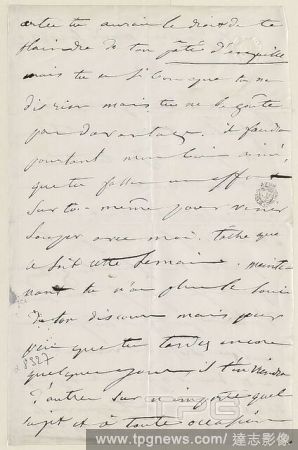 tu aurais le droit de te
plaindre de ton pâté d'anguille
mais tu es si bon que tu ne
dis rien mais tu ne le goûte
pas davantage. il faudra
pourtant mon bien aimé,
que tu fasses un effort
sur toi-même pour venir
souper avec moi. tâche que
ce soit cette semaine. mainte-
nant tu n'as plus le souci
de ton discours mais pour
peu que tu tardes encore
quelques jours, il t'en viendra
d'autres sur n'importe quel
sujet et à toute occasion
8327
TPG
www.tpgnews.com / 達志影像